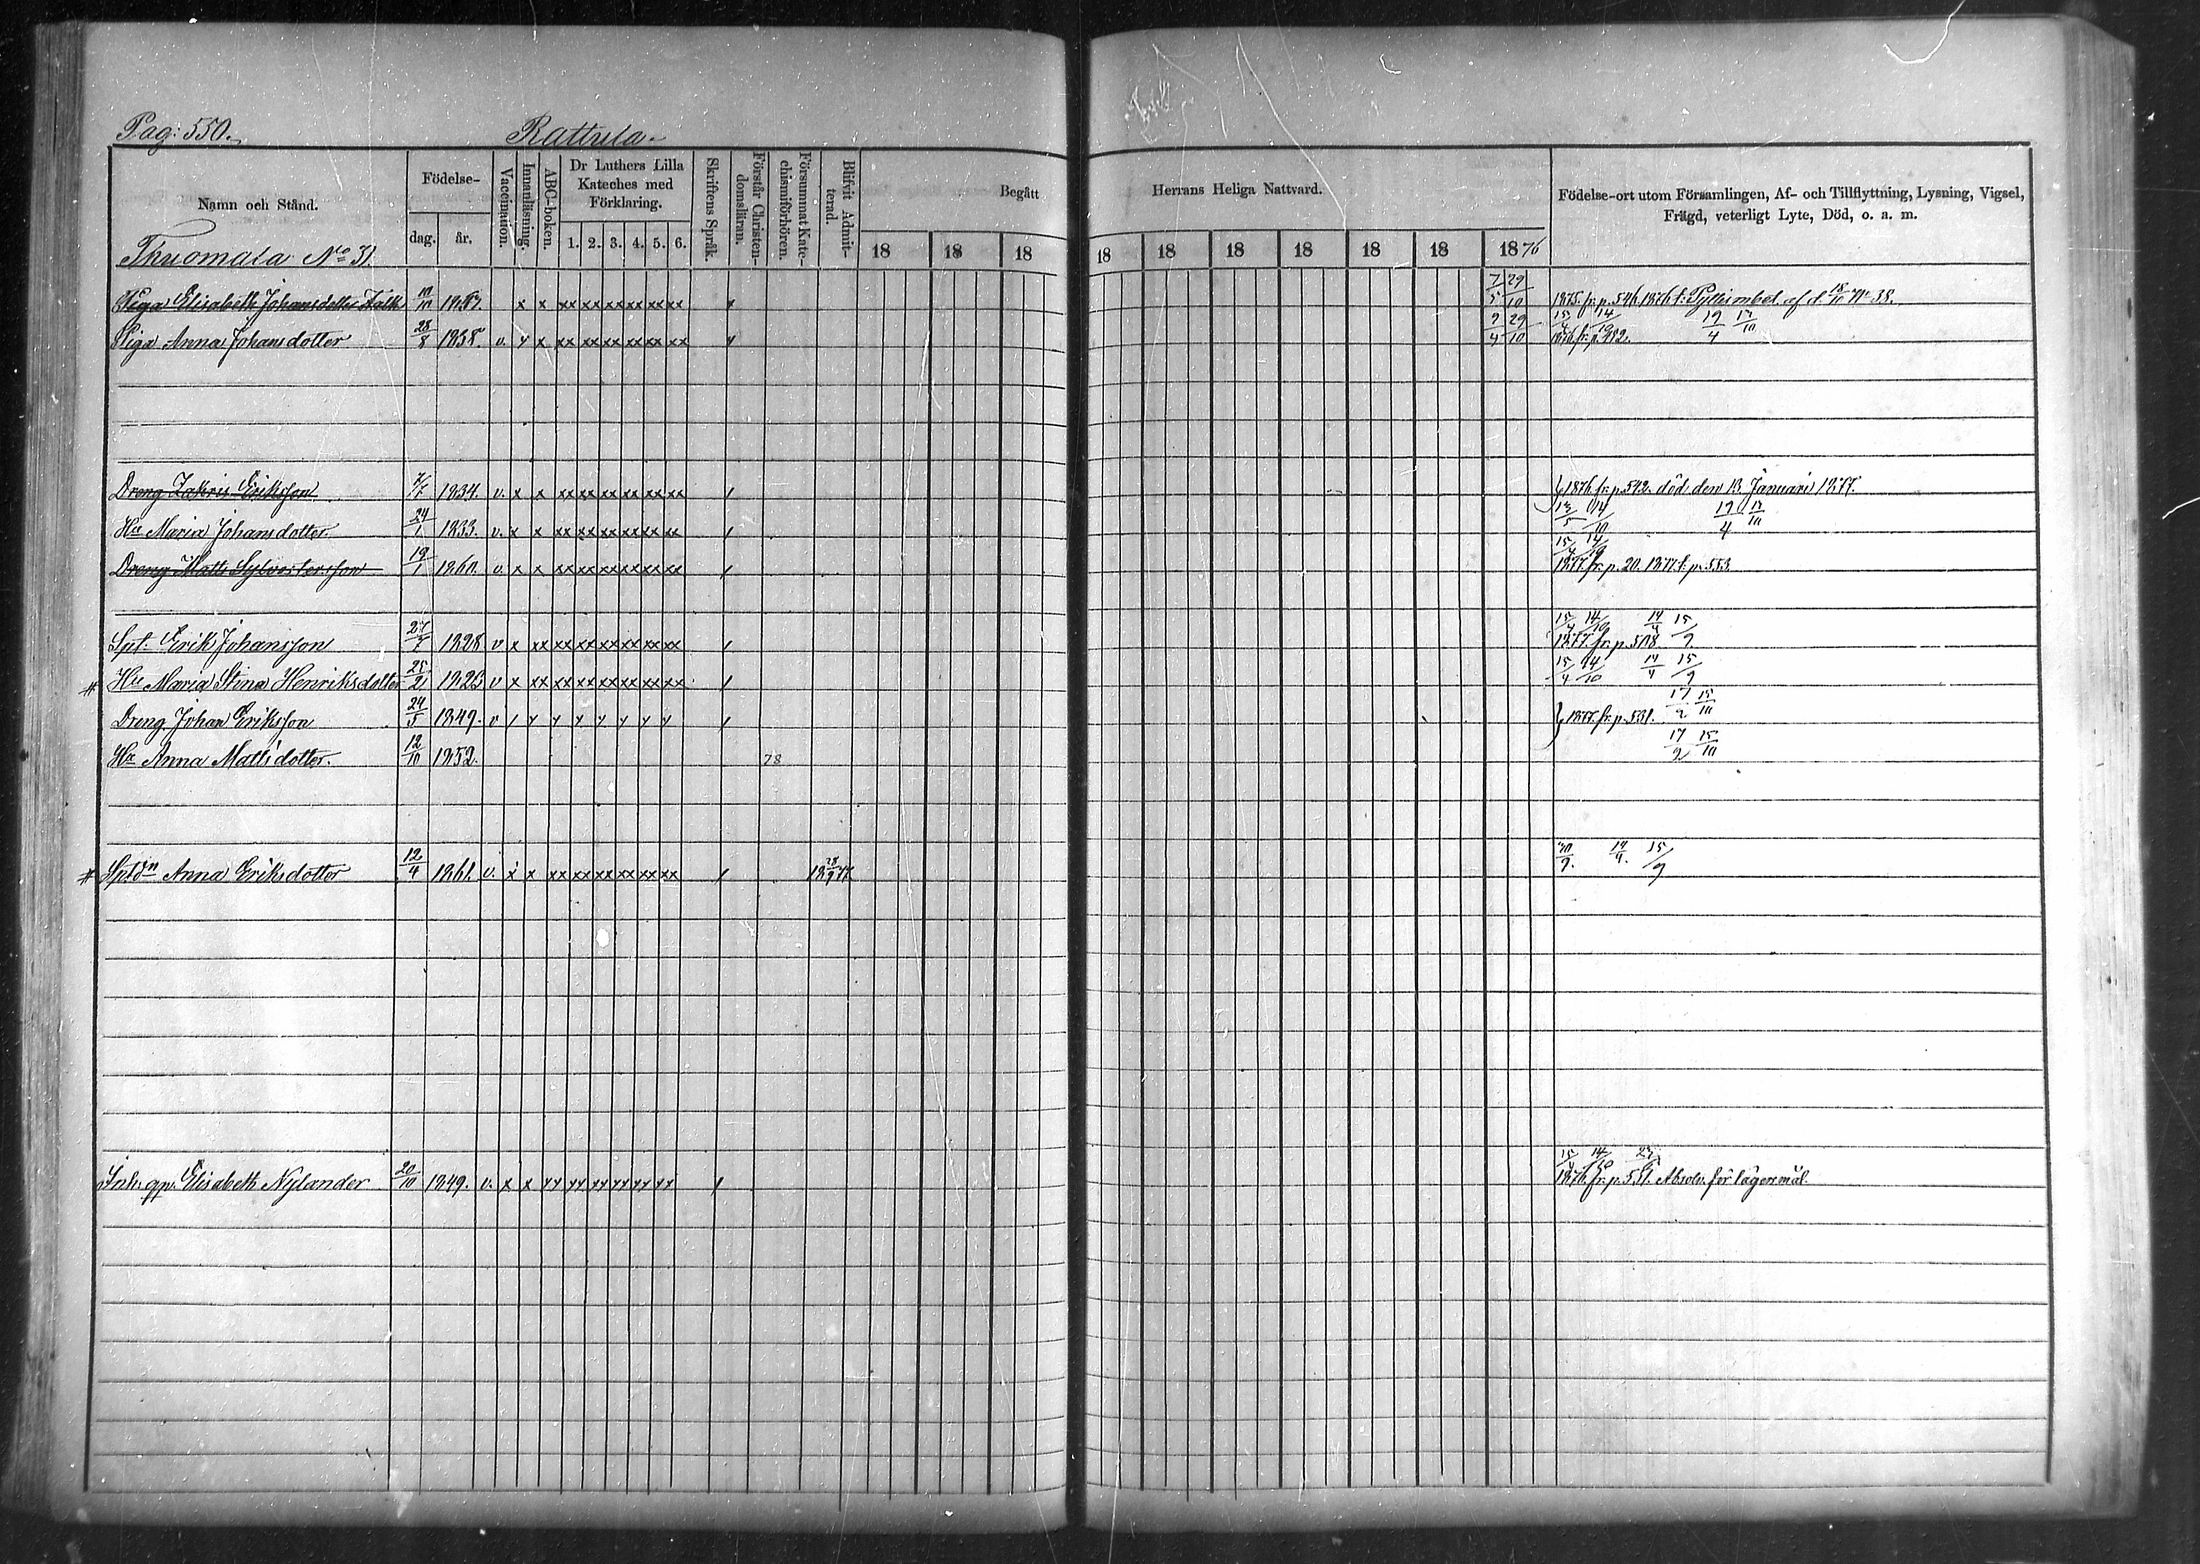 Pag: 550.
Rattula
Namn och Stånd.
Födelse-
dag. år.
Vaccination.
Innanläsning.
ABC-boken.
Dr Luthers Lilla
Kateches med
Förklaring.
1. 2. 3. 4. 5. 6.
Skriftens Språk.
Förstår Christen-
domsläran.
Försummat Kate-
chismiförhören.
Blifvit Admit-
terad.
Begått Herrans Heliga Nattvard.
18 18 18 18 18 18 18 18 18 1876
Födelse-ort utom Församlingen, Af- och Tillflyttning, Lysning, Vigsel,
Frägd, veterligt Lyte, Död, o. a. m.
Thuomala No 31.
Piga Elisabeth Johansdotter Falk 10/10 x x xx xx xx xx xx xx 7/5 29/10 1875. fr. p. 546. 1876 t: af d. 18/10 No 38.
Piga Anna Johansdotter 28/8 1858. v. x x xx xx xx xx xx xx 29/10 15/4 14/10 19/4 17/10
1876 fr. p.
Dreng Zakris Eriksson 1834. v. x x xx xx xx xx xx xx / 1876 fr. p. 542. död den 13 Januari 1877.
Hu Maria Johansdotter 24/1 1833. v. x x xx xx xx xx xx xx / 13/5 14/10 19/4 17/10
Dreng Matts Sylvestersson 19/1 1860. v. x x xx xx xx xx xx xx / 15/4 14/10
1877. fr. p. 20. 1877. t: p. 553.
Spt. Erik Johansson 27/7 1828 v x xx xx xx xx xx xx xx / 15/4 14/10 14/4 15/9
1877. fr. p. 518
# Hu Maria Stina Henriksdotter 25/2 1823 v x xx xx xx xx xx xx xx / 15/4 14/10 14/4 15/9
Dreng Johan Eriksson 24/5 1849. v / y y y y y y y / 1877. fr. p. 531. 17/2 15/10
Hu Anna Mattsdotter. 12/10 1852. 78 17/2 15/10
# Sptdn Anna Eriksdotter 12/4 1861. v. x x xx xx xx xx xx xx / 18 28/9 77 30/9. 14/4. 15/9
Inh. qp. Elisabeth Nylander 20/10 1849. v. x x yy yy yy yy yy yy / 15/4 14/10
1876. fr. p. 551. Absolv. för lägersmål.